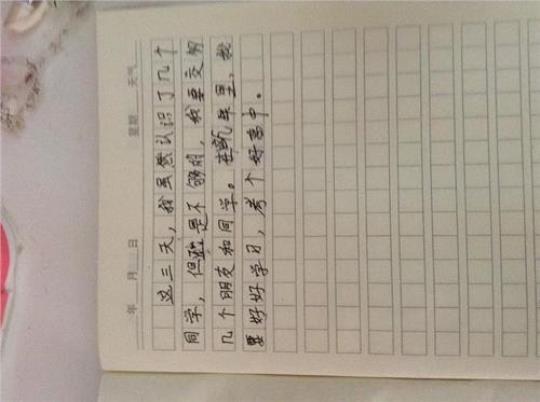 年 月 日 星期 天气
这三天，我虽然认识了几个
同学，但是不够的，我要交好
几个朋友和同学。在年里，我
要好好学习，考个好高中。